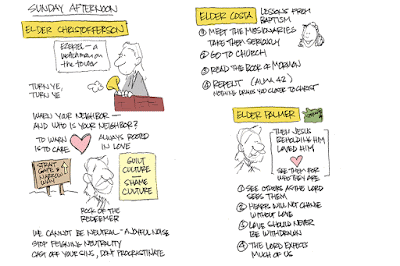 SUNDAY AFTERNOON
ELDER CHRISTOFFERSON
EZEKIEL - A
WATCHMAN ON
THE TOWER
TURN YE,
TURN YE
WARN YOUR NEIGHBOR -
AND WHO IS YOUR NEIGHBOR?
TO WARN
IS TO CARE
ALWAYS ROOTED
IN LOVE
STRAIT
GATE &
NARROW
WAY
GUILT
CULTURE
SHAME
CULTURE
ROCK OF THE
REDEEMER
WE CANNOT BE NEUTRAL - A JOYFUL NOISE
STOP FEIGNING NEUTRALITY
CAST OFF YOUR SINS, DON'T PROCRASTINATE
ELDER COSTA
LESSONS FROM
BAPTISM
① MEET THE MISSIONARIES
TAKE THEM SERIOUSLY
② GO TO CHURCH
③ READ THE BOOK OF MORMON
④ REPENT (ALMA 42)
NOTHING DRAWS YOU CLOSER TO CHRIST
ELDER PALMER
THEN JESUS
BEHOLDING HIM
LOVED HIM
SEE THEM FOR
WHO THEY ARE
① SEE OTHERS AS THE LORD
SEES THEM
② HEARTS WILL NOT CHANGE
WITHOUT LOVE
③ LOVE SHOULD NEVER
BE WITHDRAWN
④ THE LORD EXPECTS
MUCH OF US